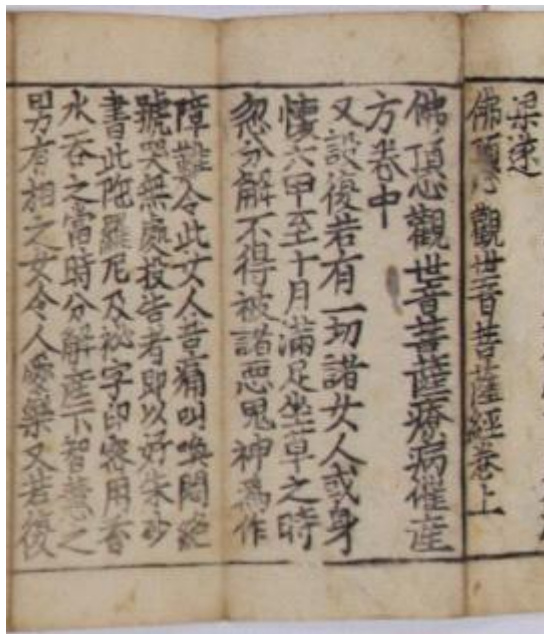 梁速
佛頂心觀世音菩薩經卷上
佛頂心觀世音菩薩療病催産
方卷中
又設復若有一切諸女人或身
懷六甲至十月滿足坐草之時
忽分解不得被諸惡鬼神爲作
障難令此女人苦痛叫喚悶絶
號哭無處投告者即以好朱砂
書此陀羅尼及袐字印密用香
水吞之當時分解産下智慧之
男有相之女令人愛樂又若復